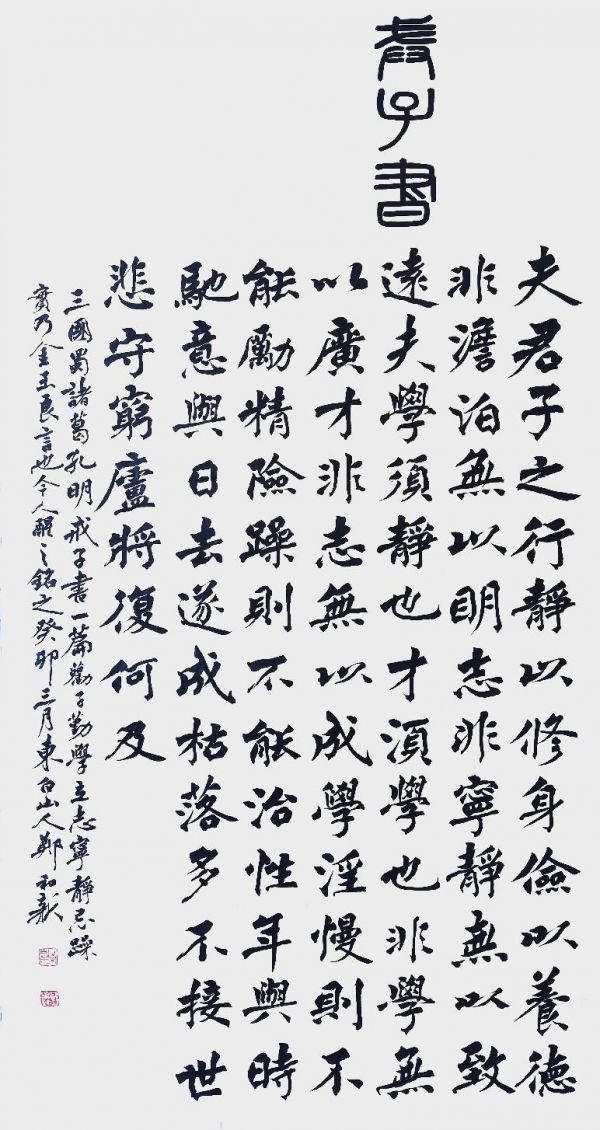 子書
夫君子之行靜以修身儉以養德
非澹泊無以明志非寧靜無以致
遠夫學須靜也才須學也非學無
以廣才非志無以成學淫慢則不
能勵精險躁則不能治性年與時
馳意與日去遂成枯落多不接世
悲守窮廬將復何及
三國蜀諸葛孔明戒子書一篇勸子勤學立志寧靜忌躁
實乃金玉良言也今人醒之銘之癸卯三月東白山人鄭和新